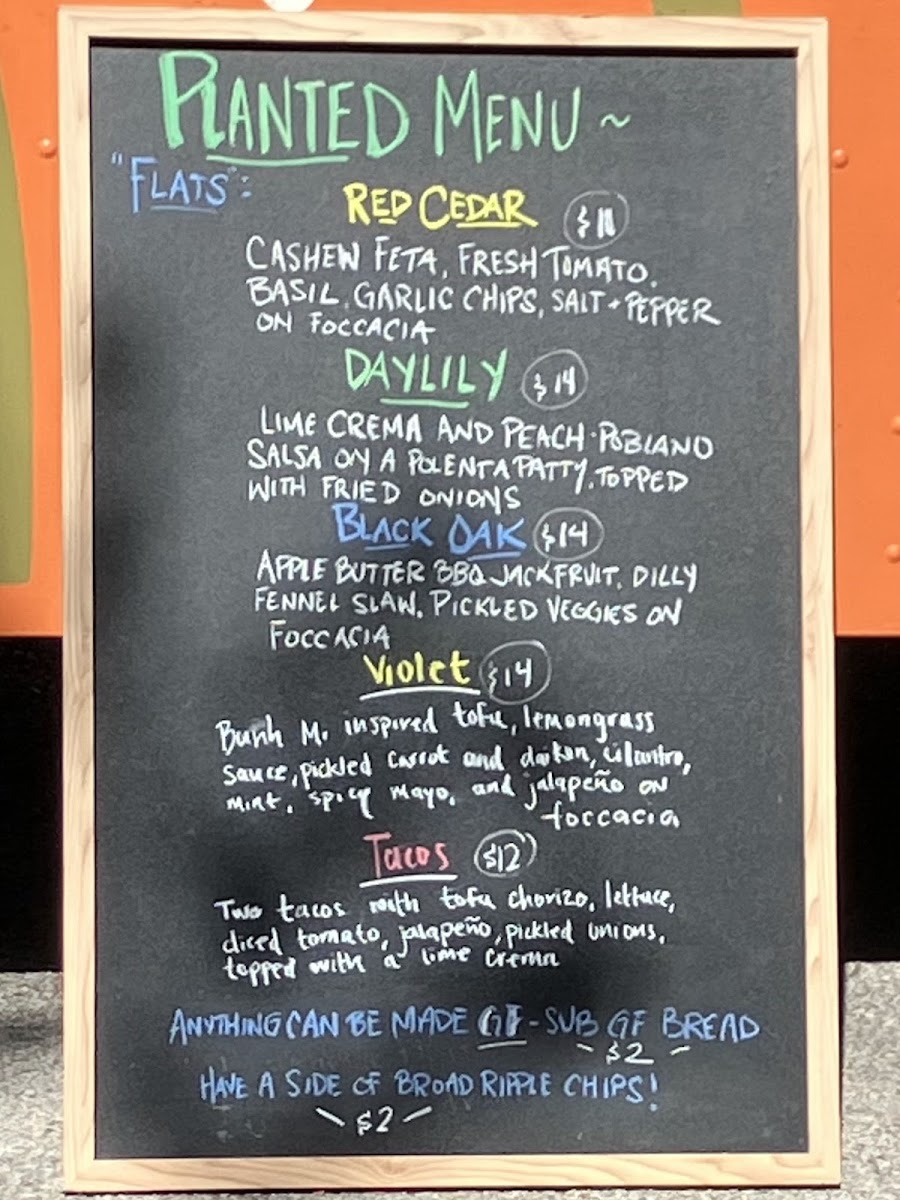 PLANTED MENU ~
"FLATS":
RED CEDAR $11
CASHEW FETA, FRESH TOMATO,
BASIL, GARLIC CHIPS, SALT + PEPPER
ON FOCCACIA
DAYLILY $14
LIME CREMA AND PEACH-POBLANO
SALSA ON A POLENTA PATTY, TOPPED
WITH FRIED ONIONS
BLACK OAK $14
APPLE BUTTER BBQ JACKFRUIT, DILLY
FENNEL SLAW, PICKLED VEGGIES ON
FOCCACIA
Violet $14
Bunh Mi inspired tofu, lemongrass
sauce, pickled carrot and daikon, cilantro,
mint, spicy mayo, and jalapeño on
foccacia
Tacos $12
Two tacos with tofu chorizo, lettuce,
diced tomato, jalapeño, pickled onions,
topped with a lime crema
ANYTHING CAN BE MADE GF - SUB GF BREAD
- $2 -
HAVE A SIDE OF BROAD RIPPLE CHIPS!
- $2 -